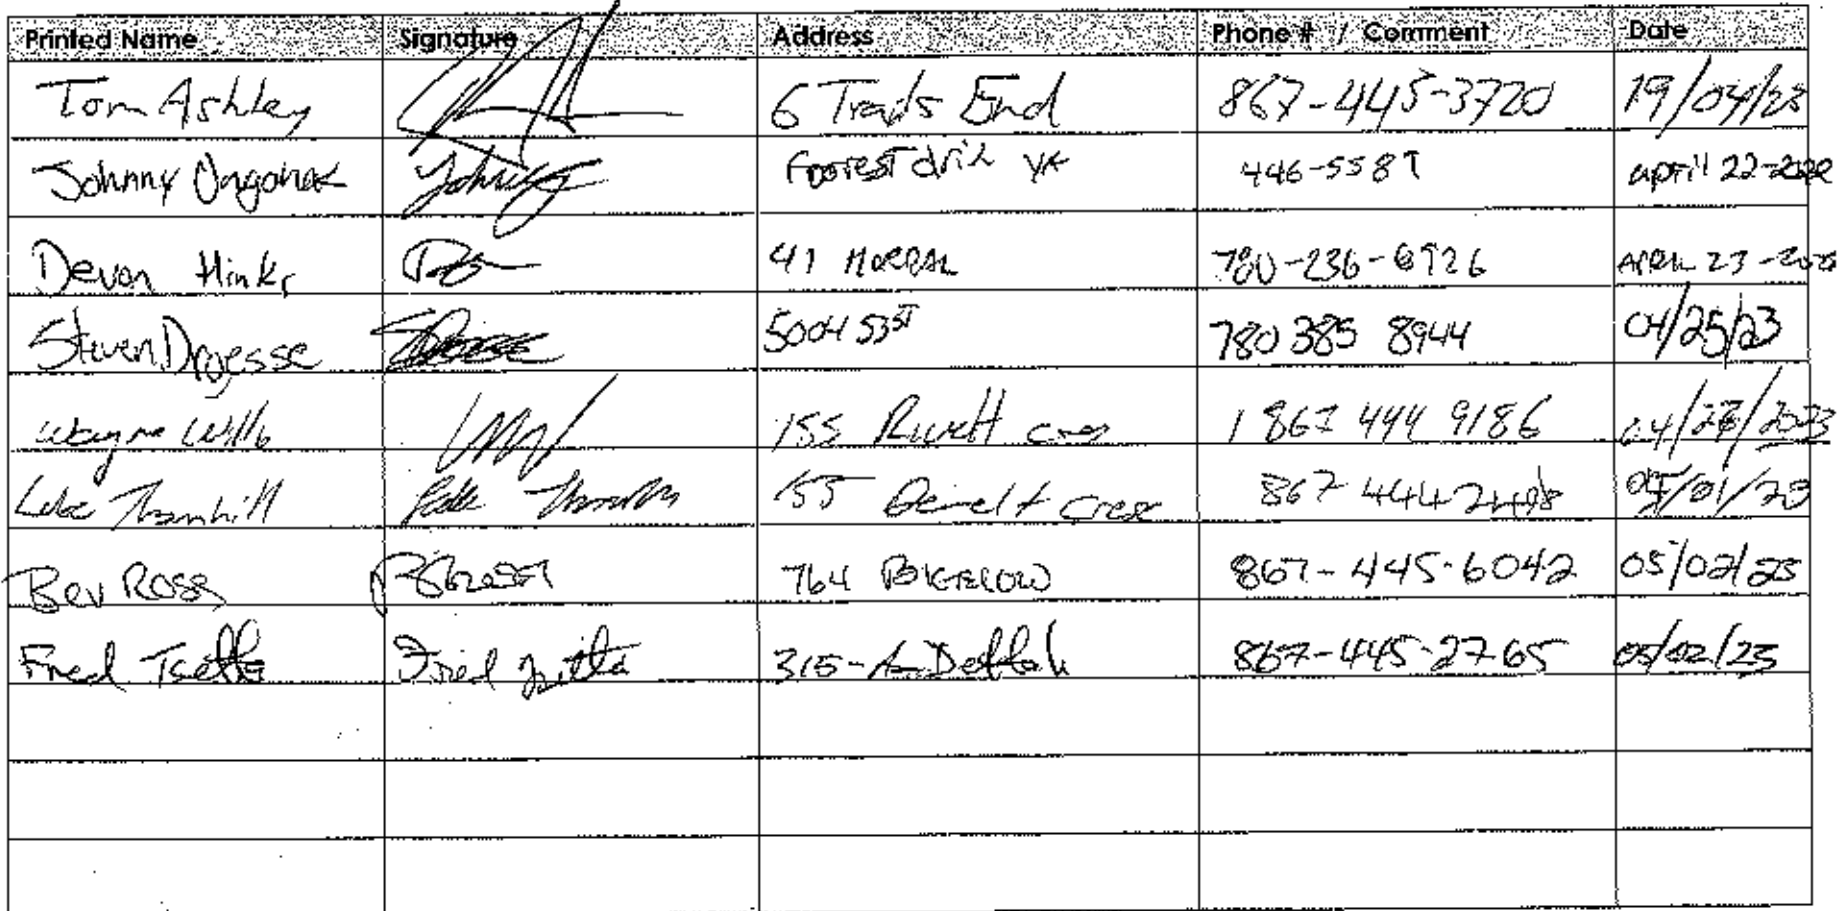 Printed Name Signature Address Phone # / Comment Date
Tom Ashley 6 Trails End 867-445-3720 19/04/23
Johnny Johnny Forrest driv YK 446-5587 april 22-
Devon Hinks 41 780-236-6926 APRIL 23-
Steven Droesse 5004 53ST 780 385 8944 04/25/23
Wayne Wills 155 cres 1 867 444 9186 04/ /2023
Luke Thornhill 155 Cresc 867 444 2498 /01/23
Bev Ross 764 BIGELOW 867-445-6042 05/02/23
Fred Tsetta Fred Tsetta 315-A Dettah 867-445-2765 05/02/23